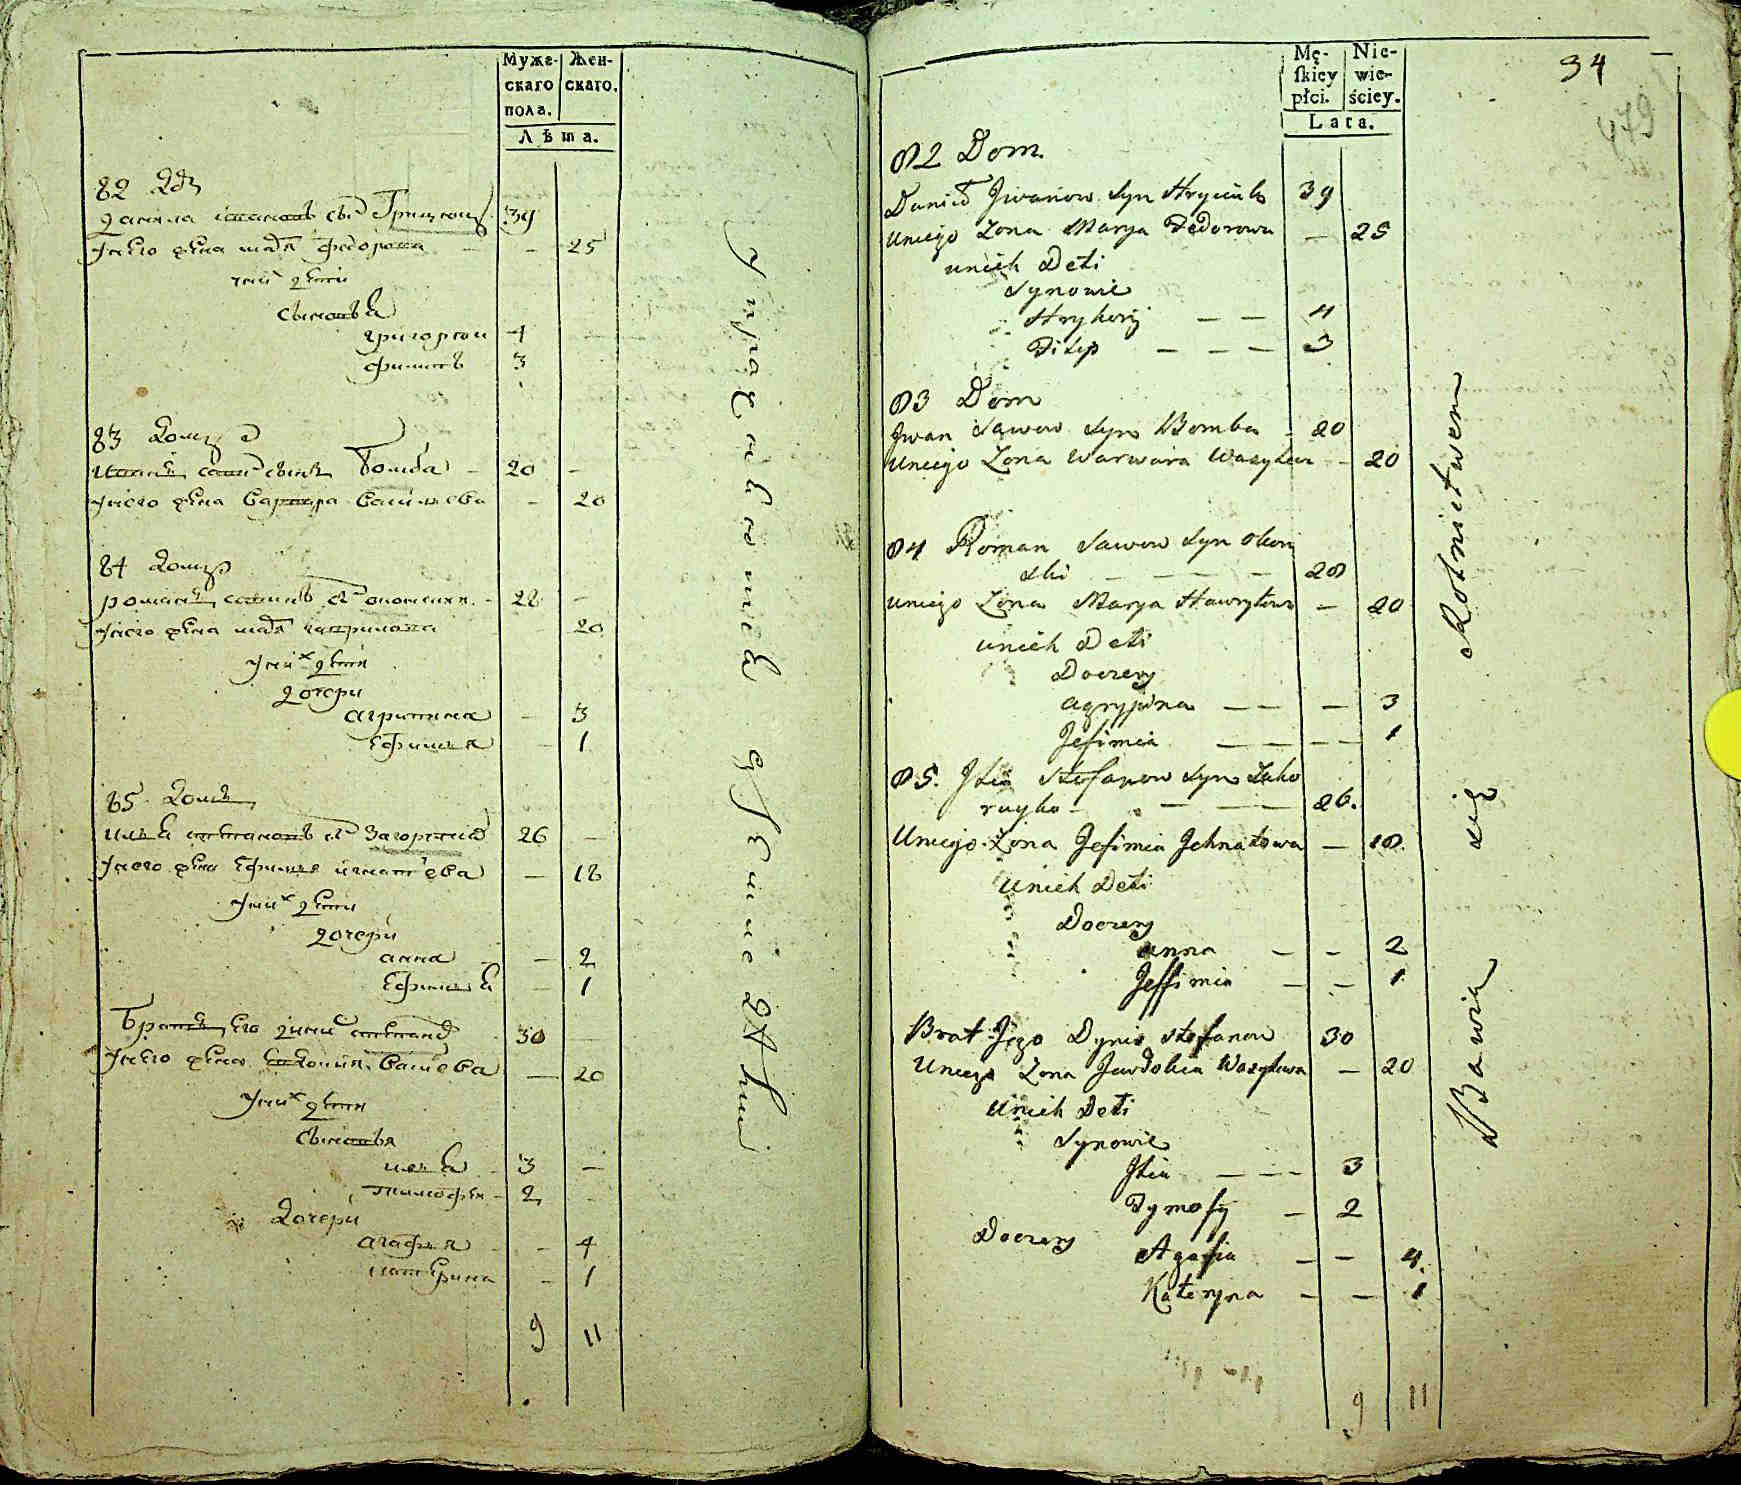 Муже-
скаго
пола.
Жен-
скаго.
Лѣта.
82
Данила Ивановъ сынъ Грицюкъ 39
У него жена Марья Федорова — — 25
У них дети
сыновья
Григореи 4
Филипъ 3
83 Домъ
Иванъ Савинъ сынъ Бомба — 20 —
У него жена Варвара Васильева — 20
84 Домъ
Романъ Савинъ сн 28 —
У него жена Марья Гаврилова 20
У них дети
Дочери
Агрипина — 3
Ефимья — 1
85 Домъ
Илья Степановъ сн 26 —
У него жена Ефимья Игнатьева — 18
У них дети
Дочери
Анна — 2
Ефимья — 1
Братъ Его Динис Степанов 30
У него жена Евдокия Васильева — 20
У них дети
Сыновья
Илья 3 —
Тимофеи 2
Дочери
Агафья — 4
Катерина — 1
9 11
Упражняютца
Mę-
skiey
płci.
Nie-
wie-
ściey.
Lata.
34
479
82 Dom
Daniel Jwanow Syn Hryciuk 39
Uniego Zona Marya Fedorowa — 25
unich Deti
Synowie
Hryhory — — 4
Filip — — — 3
83 Dom
Jwan Sawow Syn Bomba — 20
Uniego Zona Warwara Wasylew — 20
84 Roman Sawow Syn Okon
ski — — — 28
uniego Zona Marya Hawryłowa — 20
unich Deti
Doczery
Agrypina — — — 3
Jefimia — — — — 1
85. Jlia Stefanow Syn Zaho
ruyko — — — 26.
Uniego Zona Jefimia Jehnatowa — 18
Unich Deti
Doczery
Anna — — 2
Jeffimia — — 1
Brat Jego Dynis Stefanow 30
Uniego Zona Jewdokia Wasylewa — 20
Unich Deti
Synowie
Jlia — — — 3
Tymofy — 2
Doczery
Agafia — — 4.
Kateryna — — 1
9 11
Bawią się Rolnictwem